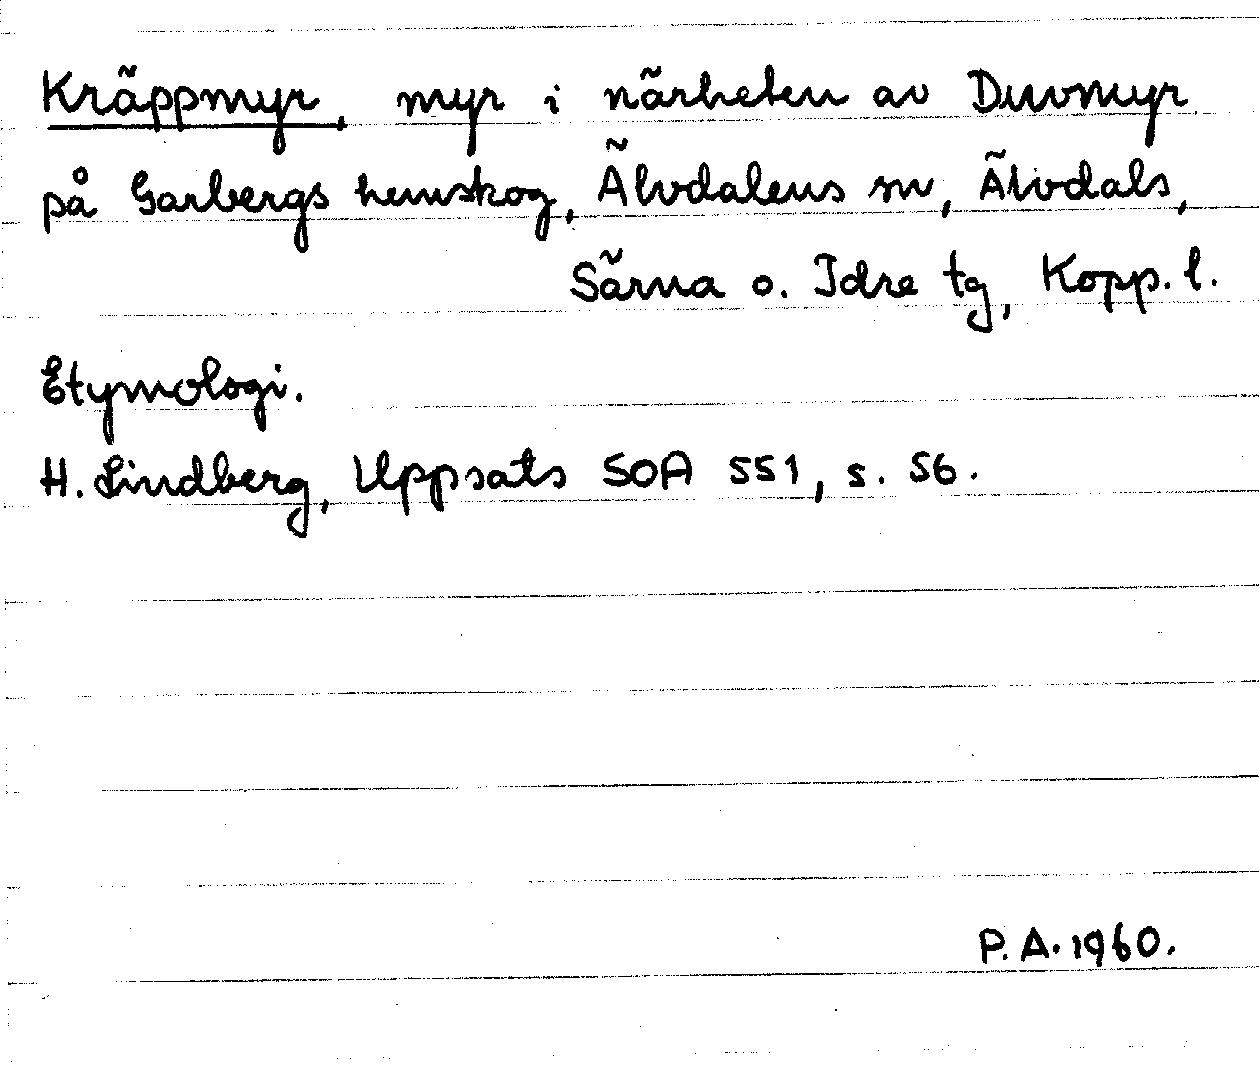 Kräppmyr, myr i närheten av Duvmyr
på Garbergs hemskog, Älvdalens sn, Älvdals,
Särna o. Idre tg, Kopp. l.
Etymologi.
H. Lindberg, Uppsats SOA 551, s. 56.
P. A. 1960.